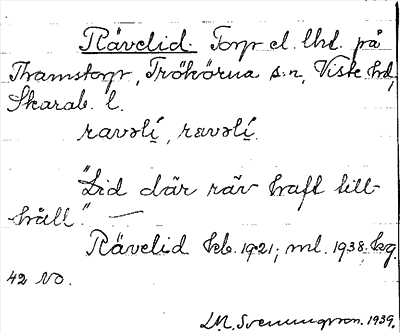 Rävelid. Torp el. lht. på
Thamstorp, Trökörna s:n, Viste hd,
Skarab. l.
ravəlí, rævəlí.
"Lid där räv haft till-
håll". —
Rävelid kb. 1921; ml. 1938; kg.
42 NO.
Svenungsson. 1939.